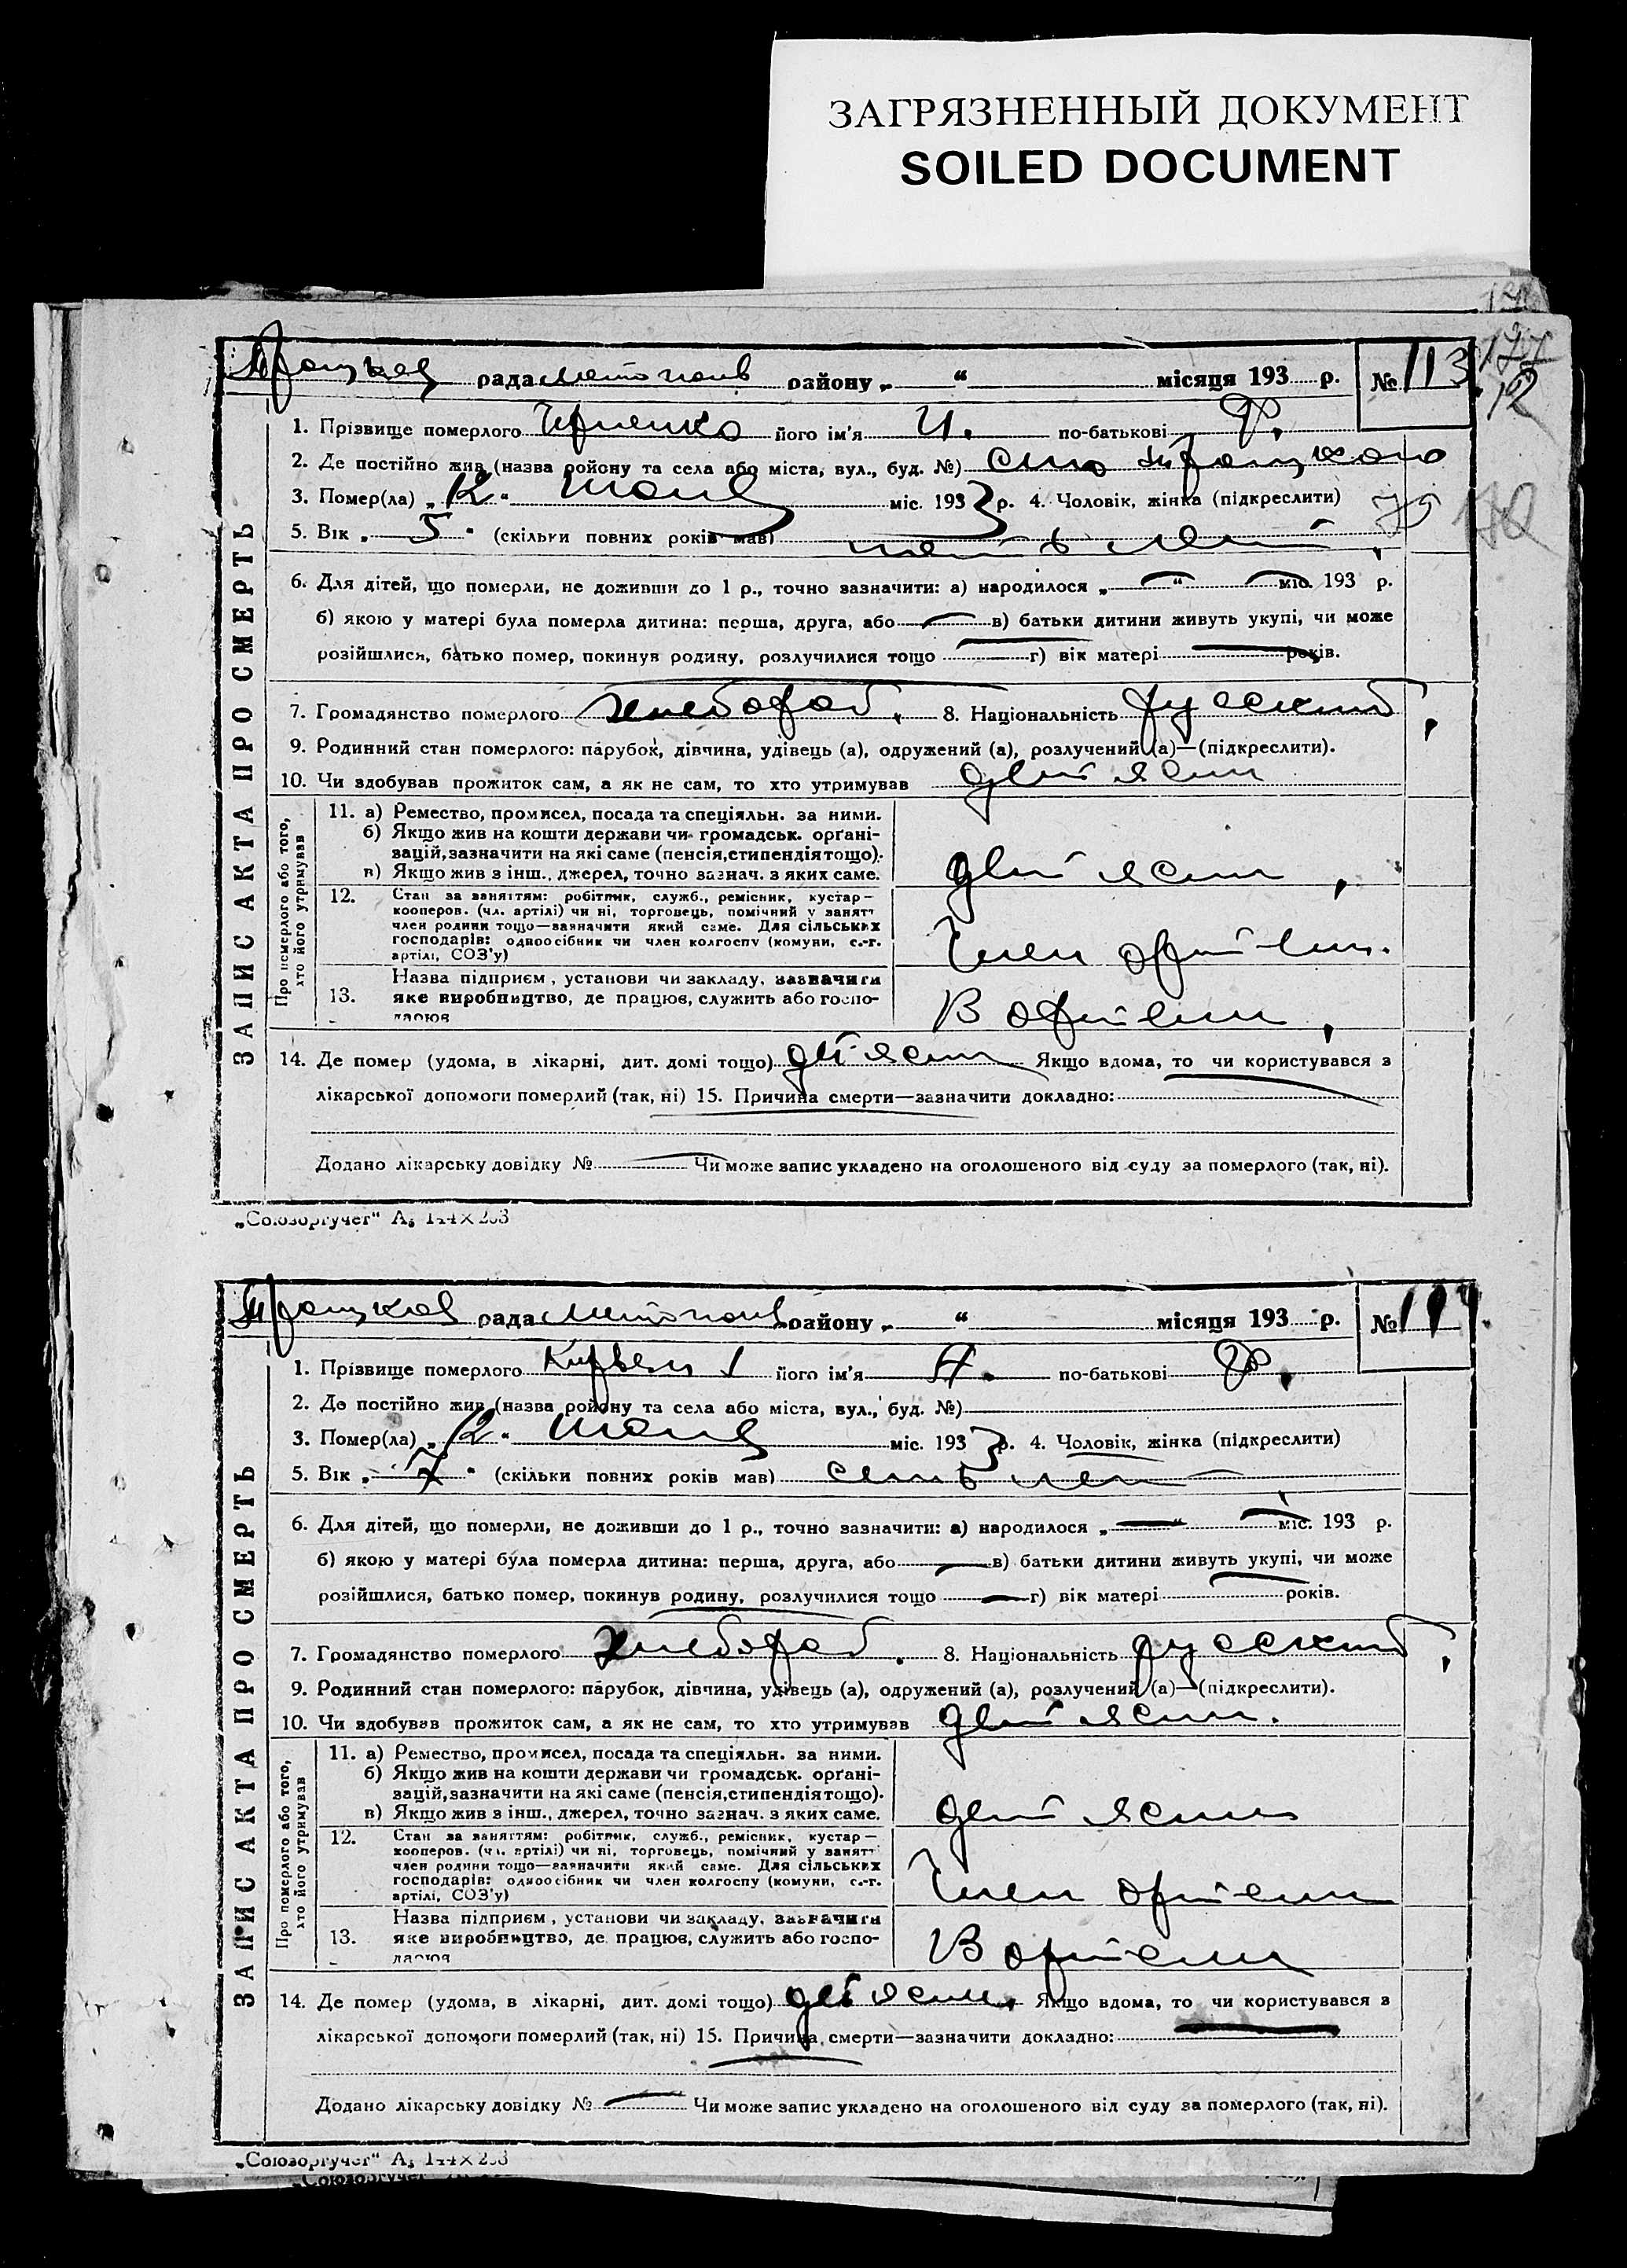 ЗАГРЯЗНЕННЫЙ ДОКУМЕНТ
SOILED DOCUMENT
рада району „ “ місяця 193 р. № 113
177
12
1. Прізвище померлого його ім'я И. по-батькові Ф.
2. Де постійно жив (назва ройону та села або міста, вул., буд. №) село
3. Помер(ла) „12“ мая міс. 193 3 р. 4. Чоловік, жінка (підкреслити)
5. Вік „ 5 “ (скільки повних років мав) пять лет
6. Для дітей, що померли, не доживши до 1 р., точно зазначити: а) народилося „ “ міс. 193 р.
б) якою у матері була померла дитина: перша, друга, або в) батьки дитини живуть укупі, чи може
розійшлися, батько помер, покинув родину, розлучилися тощо г) вік матері років.
7. Громадянство померлого хлебороб. 8. Національність русский
9. Родинний стан померлого: парубок, дівчина, удівець (а), одружений (а), розлучений (а)—(підкреслити).
10. Чи здобував прожиток сам, а як не сам, то хто утримував
ЗАПИС АКТА ПРО СМЕРТЬ
Про померлого або того, хто його утримував
11. а) Ремество, промисел, посада та спеціяльн. за ними.
б) Якщо жив на кошти держави чи громадськ. орґані-
зацій, зазначити на які саме (пенсія, стипендія тощо).
в) Якщо жив з інш., джерел, точно зазнач. з яких саме.
12. Стан за заняттям: робітник, служб., ремісник, кустар—
кооперов. (чл. артілі) чи ні, торговець, помічний у занятт
член родини тощо—зазначити який саме. Для сільських
господарів: одноосібник чи член колгоспу (комуни, с.-г.
артілі, СОЗ'у) Член артели.
13. Назва підприєм, установи чи закладу, зазначити
яке виробництво, де працює, служить або госпо-
дарює В артели,
14. Де помер (удома, в лікарні, дит. домі тощо) Якщо вдома, то чи користувався з
лікарської допомоги померлий (так, ні) 15. Причина смерти—зазначити докладно:
Додано лікарську довідку № Чи може запис укладено на оголошеного від суду за померлого (так, ні).
„Союзоргучет“ А₅ 144×203
рада району „ “ місяця 193 р. № 114
1. Прізвище померлого його ім'я А. по-батькові Ф.
2. Де постійно жив (назва ройону та села або міста, вул., буд. №)
3. Помер(ла) „12“ мая міс. 193 3 р. 4. Чоловік, жінка (підкреслити)
5. Вік „ 7 “ (скільки повних років мав) семь лет
6. Для дітей, що померли, не доживши до 1 р., точно зазначити: а) народилося „ “ міс. 193 р.
б) якою у матері була померла дитина: перша, друга, або в) батьки дитини живуть укупі, чи може
розійшлися, батько помер, покинув родину, розлучилися тощо г) вік матері років.
7. Громадянство померлого хлебороб. 8. Національність русский
9. Родинний стан померлого: парубок, дівчина, удівець (а), одружений (а), розлучений (а)—(підкреслити).
10. Чи здобував прожиток сам, а як не сам, то хто утримував
ЗАПИС АКТА ПРО СМЕРТЬ
Про померлого або того, хто його утримував
11. а) Ремество, промисел, посада та спеціяльн. за ними.
б) Якщо жив на кошти держави чи громадськ. орґані-
зацій, зазначити на які саме (пенсія, стипендія тощо).
в) Якщо жив з інш., джерел, точно зазнач. з яких саме.
12. Стан за заняттям: робітник, служб., ремісник, кустар—
кооперов. (чл. артілі) чи ні, торговець, помічний у занятт
член родини тощо—зазначити який саме. Для сільських
господарів: одноосібник чи член колгоспу (комуни, с.-г.
артілі, СОЗ'у) Член артели
13. Назва підприєм, установи чи закладу, зазначити
яке виробництво, де працює, служить або госпо-
дарює В артели
14. Де помер (удома, в лікарні, дит. домі тощо) Якщо вдома, то чи користувався з
лікарської допомоги померлий (так, ні) 15. Причина смерти—зазначити докладно:
Додано лікарську довідку № Чи може запис укладено на оголошеного від суду за померлого (так, ні).
„Союзоргучет“ А₅ 144×203